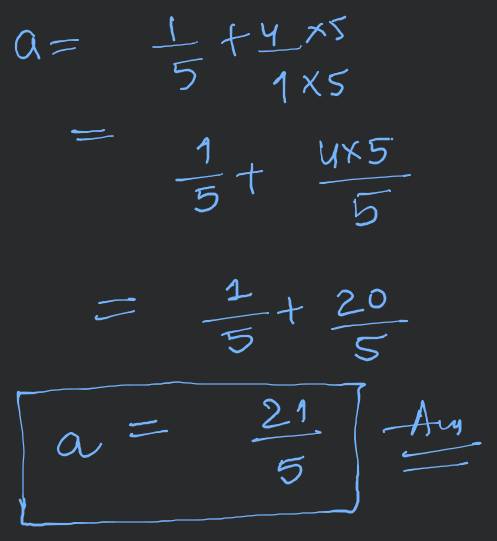 a = 1/5 + 4×5/1×5
= 1/5 + 4×5/5
= 1/5 + 20/5
a = 21/5 Ans